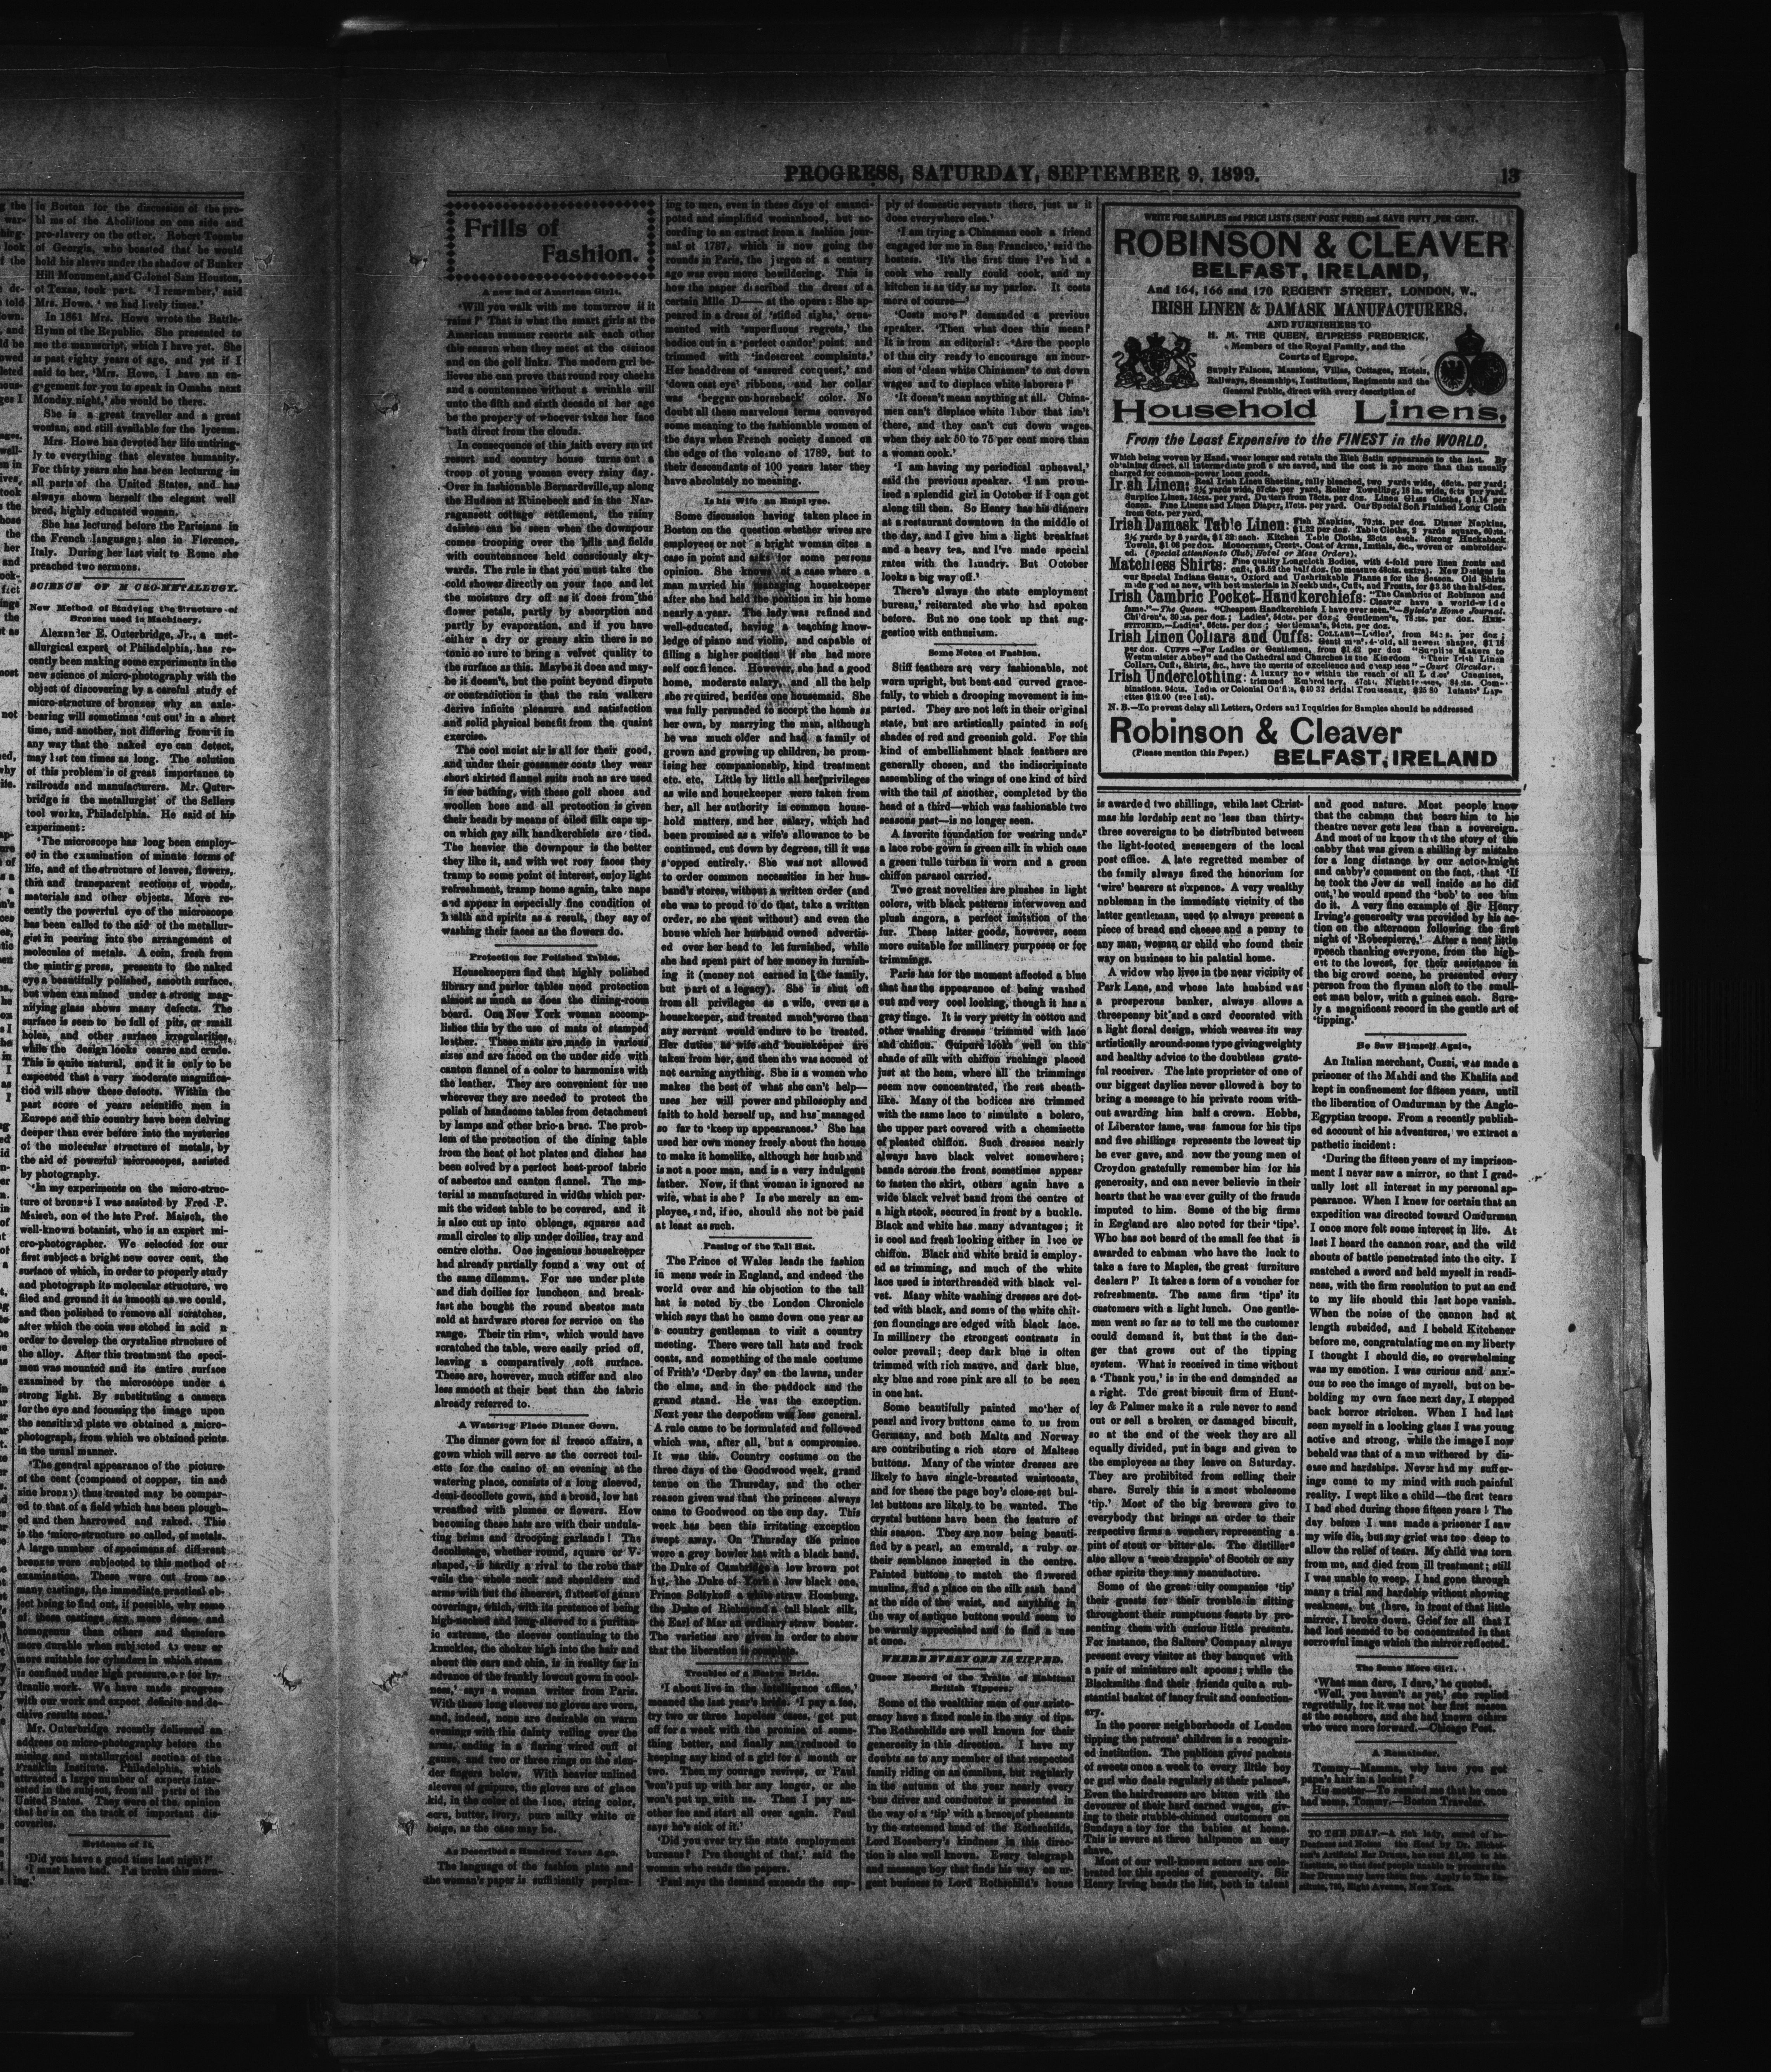 in Boston for the discussion of the pro-
bl ms of the Abolitions on one side and
pro-slavery on the other. Robert Toombs
of Georgia, who boasted that he would
hold his slaves under the shadow of Bunker
Hill Monument, and Colonel Sam Houston,
of Texas, took part. 'I remember,' said
Mrs. Howe, 'we had lively times.'
In 1861 Mrs. Howe wrote the Battle-
Hymn of the Republic. She presented to
me the manuscript, which I have yet. She
is past eighty years of age, and yet if I
said to her, 'Mrs. Howe, I have an en-
gagement for you to speak in Omaha next
Monday night,' she would be there.
She is a great traveller and a great
woman, and still available for the lyceum.
Mrs. Howe has devoted her life untiring-
ly to everything that elevates humanity.
For thirty years she has been lecturing in
all parts of the United States, and has
always shown herself the elegant well
bred, highly educated woman.
She has lectured before the Parisians in
the French language; also in Florence,
Italy. During her last visit to Rome she
preached two sermons.
SCIENCE OF M CRO-METALLUGY.
New Method of Studying the Structure of
Bronzes used in Machinery.
Alexander E. Outerbridge, Jr., a met-
allurgical expert of Philadelphia, has re-
cently been making some experiments in the
new science of micro-photography with the
object of discovering by a careful study of
micro-structure of bronzes why an axle-
bearing will sometimes 'cut out' in a short
time, and another, not differing from it in
any way that the naked eye can detect,
may last ten times as long. The solution
of this problem is of great importance to
railroads and manufacturers. Mr. Outer-
bridge is the metallurgist of the Sellers
tool works, Philadelphia. He said of his
experiment:
'The microscope has long been employ-
ed in the examination of minute forms of
life, and of the structure of leaves, flowers,
thin and transparent sections of woods,
materials and other objects. More re-
cently the powerful eye of the microscope
has been called to the aid of the metallur-
gist in peering into the arrangement of
molecules of metals. A coin, fresh from
the minting press, presents to the naked
eye a beautifully polished, smooth surface,
but when examined under a strong mag-
nifying glass shows many defects. The
surface is seen to be full of pits, or small
holes, and other surface irregularities,
while the design looks coarse and crude.
This is quite natural, and it is only to be
expected that a very moderate magnifica-
tiod will show these defects. Within the
past score of years scientific men in
Europe and this country have been delving
deeper than ever before into the mysteries
of the molecular structure of metals, by
the aid of powerful microscopes, assisted
by photography.
'In my experiments on the micro-struc-
ture of bronzes I was assisted by Fred P.
Maisch, son of the late Prof. Maisch, the
well-known botanist, who is an expert mi-
cro-photographer. We selected for our
first subject a bright new cover cent, the
surface of which, in order to properly study
and photograph its molecular structure, we
filed and ground it as smooth as we could,
and then polished to remove all scratches,
after which the coin was etched in acid n
order to develop the crystaline structure of
the alloy. After this treatment the speci-
men was mounted and its entire surface
examined by the microscope under a
strong light. By substituting a camera
for the eye and focussing the image upon
the sensitized plate we obtained a micro-
photograph, from which we obtained prints
in the usual manner.
'The general appearance of the picture
of the cent (composed of copper, tin and
zinc bronze) thus treated may be compar-
ed to that of a field which has been plough-
ed and then harrowed and raked. This
is the 'micro-structure so called, of metals.
A large number of specimens of different
bronzes were subjected to this method of
examination. These were cut from as
many castings, the immediate practical ob-
ject being to find out, if possible, why some
of these castings are more dense and
homogenus than others and therefore
more durable when subjected to wear or
more suitable for cylinders in which steam
is confined under high pressure, or for hy-
draulic work. We have made progress
with our work and expect definite and de-
cisive results soon.'
Mr. Outerbridge recently delivered an
address on micro-photography before the
mining and metallurgical section of the
Franklin Institute, Philadelphia, which
attracted a large number of experts inter-
ested in the subject, from all parts of the
United States. They were of the opinion
that he is on the track of important dis-
coveries.
Evidence of It.
'Did you have a good time last night?'
'I must have had. I'm broke this morn-
ing.'
PROGRESS, SATURDAY, SEPTEMBER 9, 1899.
13
Frills of
Fashion.
A new fad of American Girls.
'Will you walk with me tomorrow if it
rains?' That is what the smart girls at the
American summer resorts ask each other
this season when they meet at the casinos
and on the golf links. The modern girl be-
lieves she can prove that round rosy cheeks
and a countenance without a wrinkle will
unto the fifth and sixth decade of her age
be the property of whoever takes her face
bath direct from the clouds.
In consequence of this faith every smart
resort and country house turns out a
troop of young women every rainy day.
Over in fashionable Bernardsville, up along
the Hudson at Rhinebeck and in the Nar-
ragansett cottage settlement, the rainy
daisies can be seen when the downpour
comes trooping over the hills and fields
with countenances held consciously sky-
wards. The rule is that you must take the
cold shower directly on your face and let
the moisture dry off as it does from the
flower petals, partly by absorption and
partly by evaporation, and if you have
either a dry or greasy skin there is no
tonic so sure to bring a velvet quality to
the surface as this. Maybe it does and may-
be it doesn't, but the point beyond dispute
or contradiction is that the rain walkers
derive infinite pleasure and satisfaction
and solid physical benefit from the quaint
exercise.
The cool moist air is all for their good,
and under their gossamer coats they wear
short skirted flannel suits such as are used
in sea bathing, with these golf shoes and
woollen hose and all protection is given
their heads by means of oiled silk caps up-
on which gay silk handkerchiefs are tied.
The heavier the downpour is the better
they like it, and with wet rosy faces they
tramp to some point of interest, enjoy light
refreshment, tramp home again, take naps
and appear in especially fine condition of
health and spirits as a result, they say of
washing their faces as the flowers do.
Protection for Polished Tables.
Housekeepers find that highly polished
library and parlor tables need protection
almost as much as does the dining-room
board. One New York woman accomp-
lishes this by the use of mats of stamped
leather. These mats are made in various
sizes and are faced on the under side with
canton flannel of a color to harmonize with
the leather. They are convenient for use
wherever they are needed to protect the
polish of handsome tables from detachment
by lamps and other bric-a brac. The prob-
lem of the protection of the dining table
from the heat of hot plates and dishes has
been solved by a perfect heat-proof fabric
of asbestos and canton flannel. The ma-
terial is manufactured in widths which per-
mit the widest table to be covered, and it
is also cut up into oblongs, squares and
small circles to slip under doilies, tray and
centre cloths. One ingenious housekeeper
had already partially found a way out of
the same dilemma. For use under plate
and dish doilies for luncheon and break-
fast she bought the round abestos mats
sold at hardware stores for service on the
range. Their tin rims, which would have
scratched the table, were easily pried off,
leaving a comparatively soft surface.
These are, however, much stiffer and also
less smooth at their best than the fabric
already referred to.
A Watering Place Dinner Gown.
The dinner gown for al fresco affairs, a
gown which will serve as the correct toil-
ette for the casino of an evening at the
watering place, consists of a long sleeved,
demi-decollete gown, and a broad, low hat
wreathed with plumes or flowers. How
becoming these hats are with their undula-
ting brims and drooping garlands! The
decolletage, whether round, square or V-
shaped, is hardly a rival to the robe that
veils the whole neck and shoulders and
arms with but the sheerest, flattest of gauze
coverings, which, with its pretence of being
high-necked and long-sleeved to a puritan-
ic extreme, the sleeves continuing to the
knuckles, the choker high into the hair and
about the ears and chin, is in reality far in
advance of the frankly lowcut gown in cool-
ness,' says a woman writer from Paris.
With these long sleeves no gloves are worn,
and, indeed, none are desirable on warm
evenings with this dainty veiling over the
arms, ending in a flaring wired cuff of
gauze, and two or three rings on the slen-
der fingers below. With heavier unlined
sleeves of guipure, the gloves are of glace
kid, in the color of the lace, string color,
ecru, butter, ivory, pure milky white or
beige, as the case may be.
As Described a Hundred Years Ago.
The language of the fashion plate and
the woman's paper is sufficiently perplex-
ing to men, even in these days of emanci-
pated and simplified womanhood, but ac-
cording to an extract from a fashion jour-
nal of 1787, which is now going the
rounds in Paris, the jargon of a century
ago was even more bewildering. This is
how the paper described the dress of a
certain Mlle D—— at the opera: She ap-
peared in a dress of 'stifled sighs,' orna-
mented with 'superfluous regrets,' the
bodice cut in a 'perfect candor' point, and
trimmed with 'indescreet complaints.'
Her headdress of 'assured conquest,' and
'down cast eye' ribbons, and her collar
was 'beggar on horseback' color. No
doubt all these marvelous terms conveyed
some meaning to the fashionable women of
the days when French society danced on
the edge of the volcano of 1789, but to
their descendants of 100 years later they
have absolutely no meaning.
Is his Wife an Employee.
Some discussion having taken place in
Boston on the question whether wives are
employees or not a bright woman cites a
case in point and asks for some persons
opinion. She knows of a case where a
man married his managing housekeeper
after she had held the position in his home
nearly a year. The lady was refined and
well-educated, having a teaching know-
ledge of piano and violin, and capable of
filling a higher position if she had more
self confilence. However, she had a good
home, moderate salary, and all the help
she required, besides one housemaid. She
was fully persuaded to accept the home as
her own, by marrying the man, although
he was much older and had a family of
grown and growing up children, he prom-
ising her companionship, kind treatment
etc. etc. Little by little all her privileges
as wife and housekeeper were taken from
her, all her authority in common house-
hold matters, and her salary, which had
been promised as a wife's allowance to be
continued, cut down by degrees, till it was
stopped entirely. She was not allowed
to order common necessities in her hus-
band's stores, without a written order (and
she was to proud to do that, take a written
order, so she went without) and even the
house which her husband owned advertis-
ed over her head to let furnished, while
she had spent part of her money in furnish-
ing it (money not earned in the family,
but part of a legacy). She is shut off
from all privileges as a wife, even as a
housekeeper, and treated much worse than
any servant would endure to be treated.
Her duties as wife and housekeeper are
taken from her, and then she was accued of
not earning anything. She is a women who
makes the best of what she can't help—
uses her will power and philosophy and
faith to hold herself up, and has managed
so far to 'keep up appearances.' She has
used her own money freely about the house
to make it homelike, although her husband
is not a poor man, and is a very indulgent
father. Now, if that woman is ignored as
wife, what is she? Is she merely an em-
ployee, and, if so, should she not be paid
at least as such.
Passing of the Tall Hat.
The Prince of Wales leads the fashion
in mens wear in England, and indeed the
world over and his objection to the tall
hat is noted by the London Chronicle
which says that he came down one year as
a country gentleman to visit a country
meeting. There were tall hats and frock
coats, and something of the male costume
of Frith's 'Derby day' on the lawns, under
the elms, and in the paddock and the
grand stand. He was the exception.
Next year the despotism was less general.
A rule came to be formulated and followed
which was, after all, but a compromise.
It was this. Country costume on the
three days of the Goodwood week, grand
tenue on the Thursday, and the other
reason given was that the princess always
came to Goodwood on the cup day. This
week has been this irritating exception
swept away. On Thursday the prince
wore a grey bowler hat with a black band,
the Duke of Cambridge a low brown pot
hat, the Duke of York a low black one,
Prince Soltykoff a white straw Homburg,
the Duke of Richmond a tall black silk,
the Earl of Mar an ordinary straw boater.
The varieties are given in order to show
that the liberation is complete.
Troubles of a Bride.
'I about live in the intelligence office,'
moaned the last year's bride. 'I pay a fee,
try two or three hopeless cases, get put
off for a week with the promise of some-
thing better, and finally am reduced to
keeping any kind of a girl for a month or
two. Then my courage revives, or Paul
won't put up with her any longer, or she
won't put up with us. Then I pay an-
other fee and start all over again. Paul
says he's sick of it.'
'Did you ever try the state employment
bureaus? I've thought of that,' said the
woman who reads the papers.
'Paul says the demand exceeds the sup-
ply of domestic servants there, just as it
does everywhere else.'
'I am trying a Chinaman cook a friend
engaged for me in San Francisco,' said the
hostess. 'It's the first time I've had a
cook who really could cook, and my
kitchen is as tidy as my parlor. It costs
more of course—'
'Costs more?' demanded a previous
speaker. 'Then what does this mean?
It is from an editorial: 'Are the people
of this city ready to encourage an incur-
sion of 'clean white Chinamen' to cut down
wages and to displace white laborers?'
'It doesn't mean anything at all. China-
men can't displace white labor that isn't
there, and they can't cut down wages
when they ask 50 to 75 per cent more than
a woman cook.'
'I am having my periodical upheaval,'
said the previous speaker. 'I am prom-
ised a splendid girl in October if I can get
along till then. So Henry has his dinners
at a restaurant downtown in the middle of
the day, and I give him a light breakfast
and a heavy tea, and I've made special
rates with the laundry. But October
looks a big way off.'
There's always the state employment
bureau,' reiterated she who had spoken
before. But no one took up that sug-
gestion with enthusiasm.
Some Notes of Fashion.
Stiff feathers are very fashionable, not
worn upright, but bent and curved grace-
fully, to which a drooping movement is im-
parted. They are not left in their original
state, but are artistically painted in soft
shades of red and greenish gold. For this
kind of embellishment black feathers are
generally chosen, and the indiscriminate
assembling of the wings of one kind of bird
with the tail of another, completed by the
head of a third—which was fashionable two
seasons past—is no longer seen.
A favorite foundation for wearing under
a lace robe gown is green silk in which case
a green tulle turban is worn and a green
chiffon parasol carried.
Two great novelties are plushes in light
colors, with black patterns interwoven and
plush angora, a perfect imitation of the
fur. These latter goods, however, seem
more suitable for millinery purposes or for
trimmings.
Paris has for the moment affected a blue
that has the appearance of being washed
out and very cool looking, though it has a
gray tinge. It is very pretty in cotton and
other washing dresses trimmed with lace
and chiffon. Guipure looks well on this
shade of silk with chiffon ruchings placed
just at the hem, where all the trimmings
seem now concentrated, the rest sheath-
like. Many of the bodices are trimmed
with the same lace to simulate a bolero,
the upper part covered with a chemisette
of pleated chiffon. Such dresses nearly
always have black velvet somewhere;
bands across the front sometimes appear
to fasten the skirt, others again have a
wide black velvet band from the centre of
a high stock, secured in front by a buckle.
Black and white has many advantages; it
is cool and fresh looking either in lace or
chiffon. Black and white braid is employ-
ed as trimming, and much of the white
lace used is interthreaded with black vel-
vet. Many white washing dresses are dot-
ted with black, and some of the white chif-
fon flouncings are edged with black lace.
In millinery the strongest contrasts in
color prevail; deep dark blue is often
trimmed with rich mauve, and dark blue,
sky blue and rose pink are all to be seen
in one hat.
Some beautifully painted mother of
pearl and ivory buttons came to us from
Germany, and both Malta and Norway
are contributing a rich store of Maltese
buttons. Many of the winter dresses are
likely to have single-breasted waistcoats,
and for these the page boy's close-set bul-
let buttons are likely to be wanted. The
crystal buttons have been the feature of
this season. They are now being beauti-
fied by a pearl, an emerald, a ruby or
their semblance inserted in the centre.
Painted buttons to match the flowered
muslins, find a place on the silk sash band
at the side of the waist, and anything in
the way of antique buttons would seem to
be warmly appreciated and to find a use
at once.
WHERE EVERY ONE IS TIPPED.
Queer Record of the Traits of Habitual
British Tippers.
Some of the wealthier men of our aristo-
cracy have a fixed scale in the way of tips.
The Rothschilds are well known for their
generosity in this direction. I have my
doubts as to any member of that respected
family riding on an omnibus, but regularly
in the autumn of the year nearly every
'bus driver and conductor is presented in
the way of a 'tip' with a brace of pheasants
by the esteemed head of the Rothschilds,
Lord Roseberry's kindness in this direc-
tion is also well known. Every telegraph
and message boy that finds his way on ur-
gent business to Lord Rothschild's house
WRITE FOR SAMPLES and PRICE LISTS (SENT POST FREE) and SAVE FIFTY PER CENT.
ROBINSON & CLEAVER
BELFAST, IRELAND,
And 164, 166 and 170 REGENT STREET, LONDON, W.,
IRISH LINEN & DAMASK MANUFACTURERS,
AND FURNISHERS TO
H. M. THE QUEEN, EMPRESS FREDERICK,
Members of the Royal Family, and the
Courts of Europe.
Supply Palaces, Mansions, Villas, Cottages, Hotels,
Railways, Steamships, Institutions, Regiments and the
General Public, direct with every description of
Household Linens,
From the Least Expensive to the FINEST in the WORLD.
Which being woven by Hand, wear longer and retain the Rich Satin appearance to the last. By
obtaining direct, all intermediate profits are saved, and the cost is no more than that usually
charged for common-power loom goods.
Irish Linen: Real Irish Linen Sheeting, fully bleached, two yards wide, 46cts. per yard;
2½ yards wide, 57cts. per yard, Roller Towelling, 18 in. wide, 6cts per yard.
Surplice Linen, 14cts. per yard. Dusters from 78cts. per doz. Linen Glass Cloths, $1.14 per
dozen. Fine Linens and Linen Diaper, 17cts. per yard. Our Special Soft Finished Long Cloth
from 6cts. per yard.
Irish Damask Table Linen: Fish Napkins, 70cts. per doz. Dinner Napkins,
$1.32 per doz. Table Cloths, 2 yards square, 60cts.
2½ yards by 3 yards, $1.32 each. Kitchen Table Cloths, 23cts each. Strong Huckaback
Towels, $1.08 per doz. Monograms, Crests, Coat of Arms, Initials, &c., woven or embroider-
ed. (Special attention to Club, Hotel or Mess Orders).
Matchless Shirts: Fine quality Longcloth Bodies, with 4-fold pure linen fronts and
cuffs, $8.52 the half doz. (to measure 48cts. extra). New Designs in
our Special Indiana Gauze, Oxford and Unshrinkable Flannels for the Season. Old Shirts
made good as new, with best materials in Neckbands, Cuffs, and Fronts, for $3.36 the half-doz.
Irish Cambric Pocket-Handkerchiefs: "The Cambrics of Robinson and
Cleaver have a world-wide
fame."—The Queen. "Cheapest Handkerchiefs I have ever seen."—Sylvia's Home Journal.
Children's, 30cts. per doz.; Ladies', 54cts. per doz.; Gentlemen's, 78cts. per doz. HEM-
STITCHED.—Ladies', 66cts. per doz.; Gentlemen's, 94cts. per doz.
Irish Linen Collars and Cuffs: COLLARS—Ladies', from 84cts. per doz;
Gentlemen's, 4-fold, all newest shapes, $1.18
per doz. CUFFS—For Ladies or Gentlemen, from $1.42 per doz "Surplice Makers to
Westminster Abbey" and the Cathedral and Churches in the Kingdom "Their Irish Linen
Collars, Cuffs, Shirts, &c., have the merits of excellence and cheapness"—Court Circular.
Irish Underclothing: A luxury now within the reach of all Ladies' Chemises,
trimmed Embroidery, 47cts, Nightdresses, 84cts. Com-
binations, 94cts. India or Colonial Outfits, $40 32 Bridal Trousseaux, $25 80 Infants' Lay-
ettes $12.00 (see list).
N. B.—To prevent delay all Letters, Orders and Inquiries for Samples should be addressed
Robinson & Cleaver
(Please mention this Paper.)
BELFAST, IRELAND
is awarded two shillings, while last Christ-
mas his lordship sent no less than thirty-
three sovereigns to be distributed between
the light-footed messengers of the local
post office. A late regretted member of
the family always fixed the honorium for
'wire' bearers at sixpence. A very wealthy
nobleman in the immediate vicinity of the
latter gentleman, used to always present a
piece of bread and cheese and a penny to
any man, woman or child who found their
way on business to his palatial home.
A widow who lives in the near vicinity of
Park Lane, and whose late husband was
a prosperous banker, always allows a
threepenny bit and a card decorated with
a light floral design, which weaves its way
artistically around some type giving weighty
and healthy advice to the doubtless grate-
ful receiver. The late proprietor of one of
our biggest daylies never allowed a boy to
bring a message to his private room with-
out awarding him half a crown. Hobbs,
of Liberator fame, was famous for his tips
and five shillings represents the lowest tip
he ever gave, and now the young men of
Croydon gratefully remember him for his
generosity, and can never believie in their
hearts that he was ever guilty of the frauds
imputed to him. Some of the big firms
in England are also noted for their 'tips'.
Who has not beard of the small fee that is
awarded to cabman who have the luck to
take a fare to Maples, the great furniture
dealers?' It takes a form of a voucher for
refreshments. The same firm 'tips' its
customers with a light lunch. One gentle-
men went so far as to tell me the customer
could demand it, but that is the dan-
ger that grows out of the tipping
system. What is received in time without
a 'Thank you,' is in the end demanded as
a right. Tde great biscuit firm of Hunt-
ley & Palmer make it a rule never to send
out or sell a broken or damaged biscuit,
so at the end of the week they are all
equally divided, put in bags and given to
the employees as they leave on Saturday.
They are prohibited from selling their
share. Surely this is a most wholesome
'tip.' Most of the big brewers give to
everybody that brings an order to their
respective firms a voucher, representing a
pint of stout or bitter ale. The distillers
also allow a 'wee drapple' of Scotch or any
other spirits they may manufacture.
Some of the great city companies 'tip'
their guests for their trouble in sitting
throughout their sumptuous feasts by pre-
senting them with curious little presents.
For instance, the Salters' Company always
present every visitor at they banquet with
a pair of miniature salt spoons; while the
Blacksmiths find their friends quite a sub-
stantial basket of fancy fruit and confection-
ery.
In the poorer neighborhoods of London
tipping the patrons' children is a recogniz-
ed institution. The publican gives packets
of sweets once a week to every little boy
or girl who deals regularly at their palaces.
Even the hairdressers are bitten with the
devourer of their hard earned wages, giv-
ing to their stubble-chinned customers on
Sundays a toy for the babies at home.
This is severe at three halfpence an easy
shave.
Most of our well-known actors are cele-
brated for this species of generosity. Sir
Henry Irving heads the list, both in talent
and good nature. Most people know
that the cabman that bears him to his
theatre never gets less than a sovereign.
And most of us know that the story of the
cabby that was given a shilling by mistake
for a long distance by our actor-knight
and cabby's comment on the fact, that 'If
he took the Jew as well inside as he did
out,' he would spend the 'bob' to see him
do it. A very fine example of Sir Henry
Irving's generosity was provided by his ac-
tion on the afternoon following the first
night of 'Robespierre.' After a neat little
speech thanking everyone, from the high-
est to the lowest, for their assistance in
the big crowd scene, he presented every
person from the flyman aloft to the small-
est man below, with a guinea each. Sure-
ly a magnificent record in the gentle art of
'tipping.'
He Saw Himself Again.
An Italian merchant, Cuzzi, was made a
prisoner of the Mahdi and the Khalifa and
kept in confinement for fifteen years, until
the liberation of Omdurman by the Anglo-
Egyptian troops. From a recently publish-
ed account of his adventures, we extract a
pathetic incident:
'During the fifteen years of my imprison-
ment I never saw a mirror, so that I grad-
ually lost all interest in my personal ap-
pearance. When I knew for certain that an
expedition was directed toward Omdurman
I once more felt some interest in life. At
last I heard the cannon roar, and the wild
shouts of battle penetrated into the city. I
snatched a sword and held myself in readi-
ness, with the firm resolution to put an end
to my life should this last hope vanish.
When the noise of the cannon had at
length subsided, and I beheld Kitchener
before me, congratulating me on my liberty
I thought I should die, so overwhelming
was my emotion. I was curious and anxi-
ous to see the image of myself, but on be-
holding my own face next day, I stepped
back horror stricken. When I had last
seen myself in a looking glass I was young
active and strong, while the image I now
beheld was that of a man withered by dis-
ease and hardships. Never had my suffer-
ings come to my mind with such painful
reality. I wept like a child—the first tears
I had shed during those fifteen years! The
day before I was made a prisoner I saw
my wife die, but my grief was too deep to
allow the relief of tears. My child was torn
from me, and died from ill treatment; still
I was unable to weep. I had gone through
many a trial and hardship without showing
weakness, but there, in front of that little
mirror, I broke down. Grief for all that I
had lost seemed to be concentrated in that
sorrowful image which the mirror reflected.
The Some More Girl.
'What man dare, I dare,' he quoted.
'Well, you haven't as yet,' she replied
regretfully, for it was not her first season
at the seashore, and she had known others
who were more forward.—Chicago Post.
A Remainder.
Tommy—Mamma, why have you got
papa's hair in a locket?
His mother—To remind me that he once
had some, Tommy.—Boston Traveler.
TO THE DEAF.—A rich lady, cured of her
Deafness and Noises in the Head by Dr. Nichol-
son's Artificial Ear Drums, has sent £1,000 to his
Institute, so that deaf people unable to procure the
Ear Drums may have them free. Apply to The In-
stitute, 780, Eight Avenue, New York.